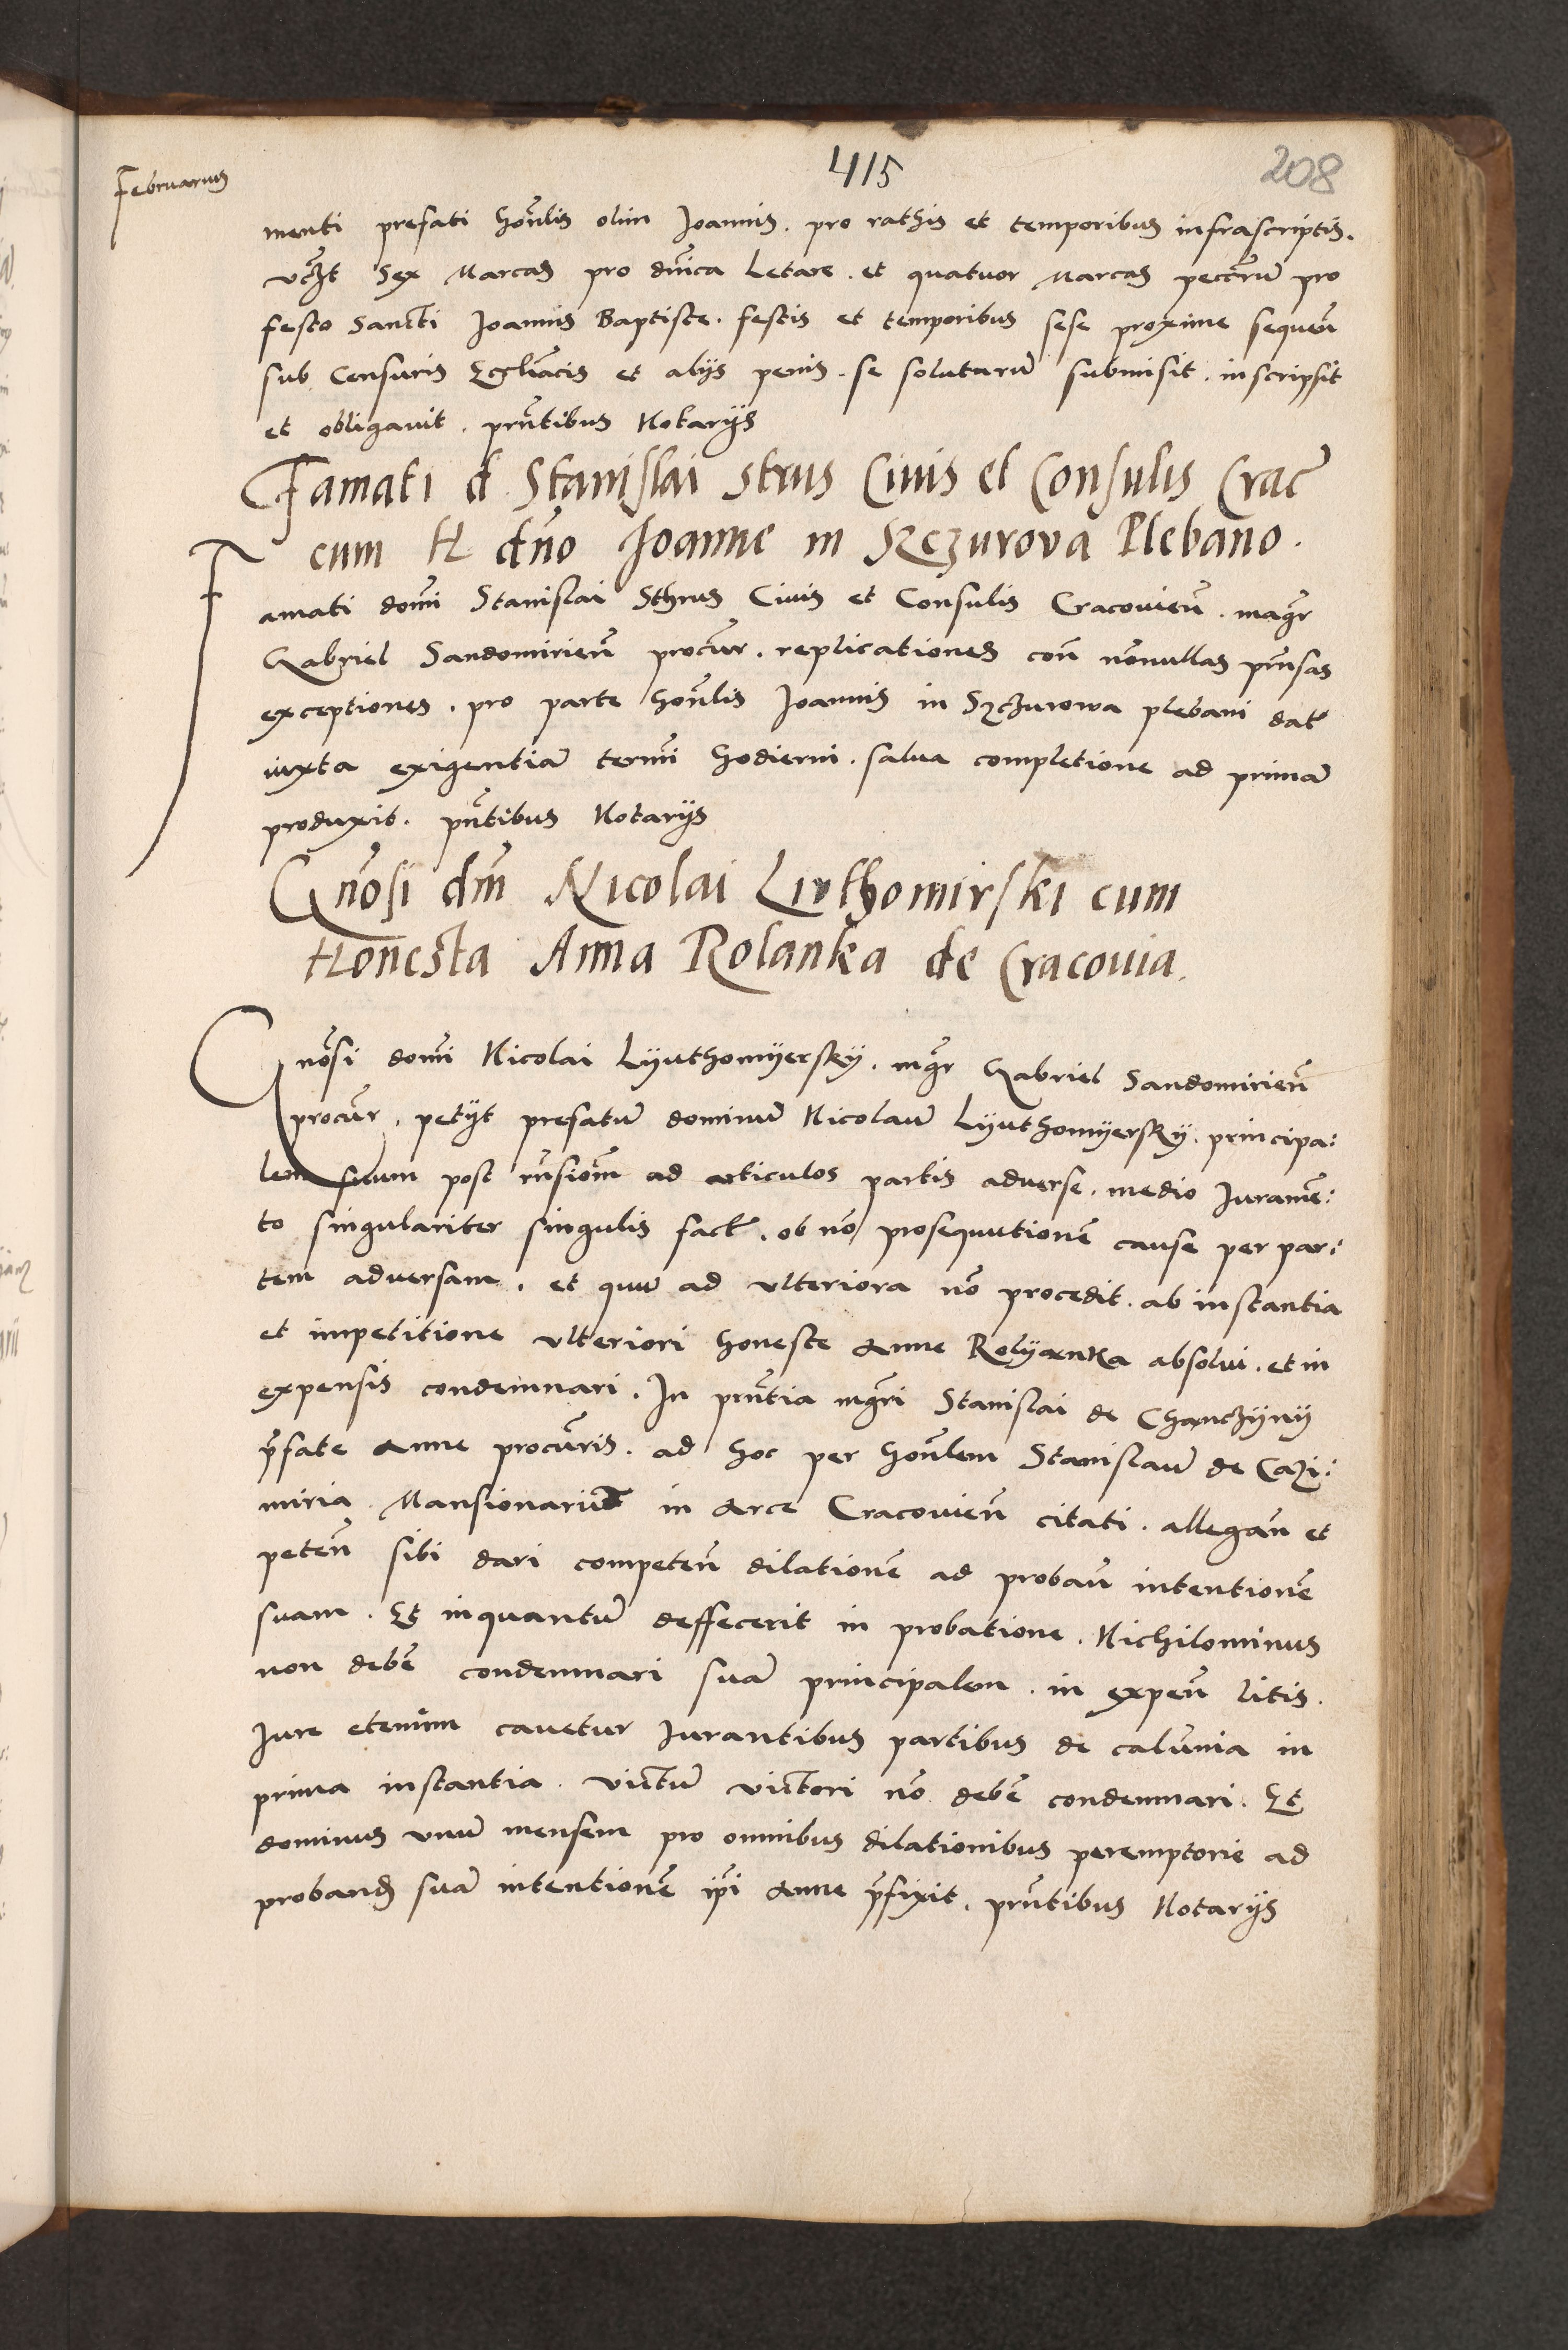 Februarius
415
208
menti prefati honlis olim Joannis . pro rathis et temporibus infrascriptis .
vczt Sex Marcas pro dnica Letare . et quatuor Marcas peccuniarum pro
festo Sancti Joannis Baptiste . festis et temporibus sese proxime sequen
sub Censuris Eccliacis et alijs penis . se soluturum submisit . inscripsit
et obligauit . prntibus Notarijs
Famati d Stanislai Strus Ciuis et Consulis Crac
cum H dno Joanne in Szczurova Plebano .
Famati domi Stanislai Sthrus Ciuis et Consulis Cracouien . magr
Gabriel Sandomirien procur . replicationes con nonnullas prnsas
exceptiones . pro parte honlis Joannis in Szczurowa plebani dat
iuxta exigentia termi hodierni . salua completione ad prima
produxit . pntibus Notarijs
Gnosi dni Nicolai Liuthomirski cum
Honesta Anna Rolanka de Cracouia .
Gnosi domi Nicolai Lyuthomyersky . mgr Gabriel Sandomirien
procur . petijt prefatu dominu Nicolau Lyuthomyersky . principa:
lem suum post rnsiom ad articulos partis aduerse . medio Jurame:
to singulariter singulis fact . ob no prosequutione cause per par:
tem aduersam . et quu ad vlteriora no procedit . ab instantia
et impetitione vlteriori honeste Anne Rolyanka absolui . et in
expensis condemnari . In prntia mgri Stanislai de Chanczyny
pfate Anne procuris . ad hoc per honlem Stanislau de Cazi:
miria Mansionariu in Arce Cracouien citati . allegan et
peten sibi dari competen dilatione ad proban intentione
suam . Et inquantu deffecerit in probatione . Nichilominus
non debe condemnari sua principalem . in expen litis .
Jure etenim cauetur Jurantibus partibus de calunia in
prima instantia . victu victori no debe condemnari . Et
dominus vnu mensem pro omnibus dilationibus peremptorie ad
proband sua intentione ipi Anne pfixit . prntibus Notarijs